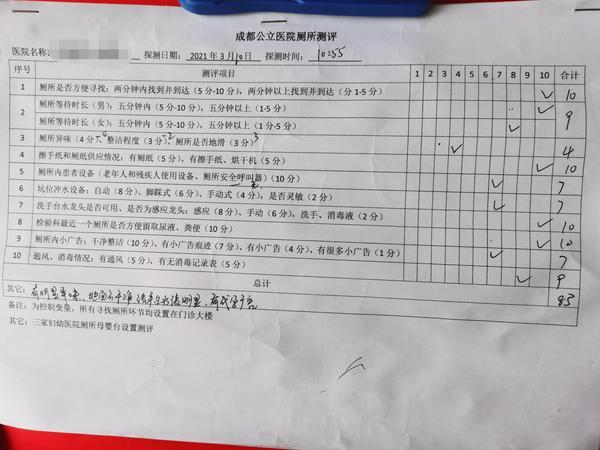 成都公立医院厕所测评
医院名称: 探测日期: 2021 年 3 月 10 日 探测时间: 10:55
序号 测评项目 1 2 3 4 5 6 7 8 9 10 合计
1 厕所是否方便寻找:两分钟内找到并到达(5 分-10 分),两分钟以上找到并到达(分 1-5 分) ✓ 10
2 厕所等待时长(男):五分钟内(5 分-10 分),五分钟以上(1-5 分)
厕所等待时长(女):五分钟内(5 分-10 分),五分钟以上(1 分-5 分) ✓ 9
3 厕所异味(4 分)、整洁程度(3 分)、厕所是否地滑(3 分) ✓ 4
4 擦手纸和厕纸供应情况:有厕纸(5 分)、有擦手纸、烘干机(5 分) ✓ 10
5 厕所内患者设备(老年人和残疾人使用设备、厕所安全呼叫器)(10 分) ✓ 7
6 坑位冲水设备:自动(8 分)、脚踩式(6 分)、手动式(4 分),是否灵敏(2 分) ✓ 7
7 洗手台水龙头是否可用、是否为感应龙头:感应(8 分)、手动(6 分),洗手、消毒液(2 分)
8 检验科最近一个厕所是否方便留取尿液、粪便(10 分) ✓ 10
9 厕所内小广告:干净整洁(10 分)、有小广告痕迹(7 分)、有小广告(4 分)、有很多小广告(1 分) ✓ 10
10 通风、消毒情况:有通风(5 分)、有无消毒记录表(5 分) ✓ 7
总计 ✓ 9
其它: 有明显异味、地面不干净 85
备注:为控制变量,所有寻找厕所环节均设置在门诊大楼
其它:三家妇幼医院厕所母婴台设置测评